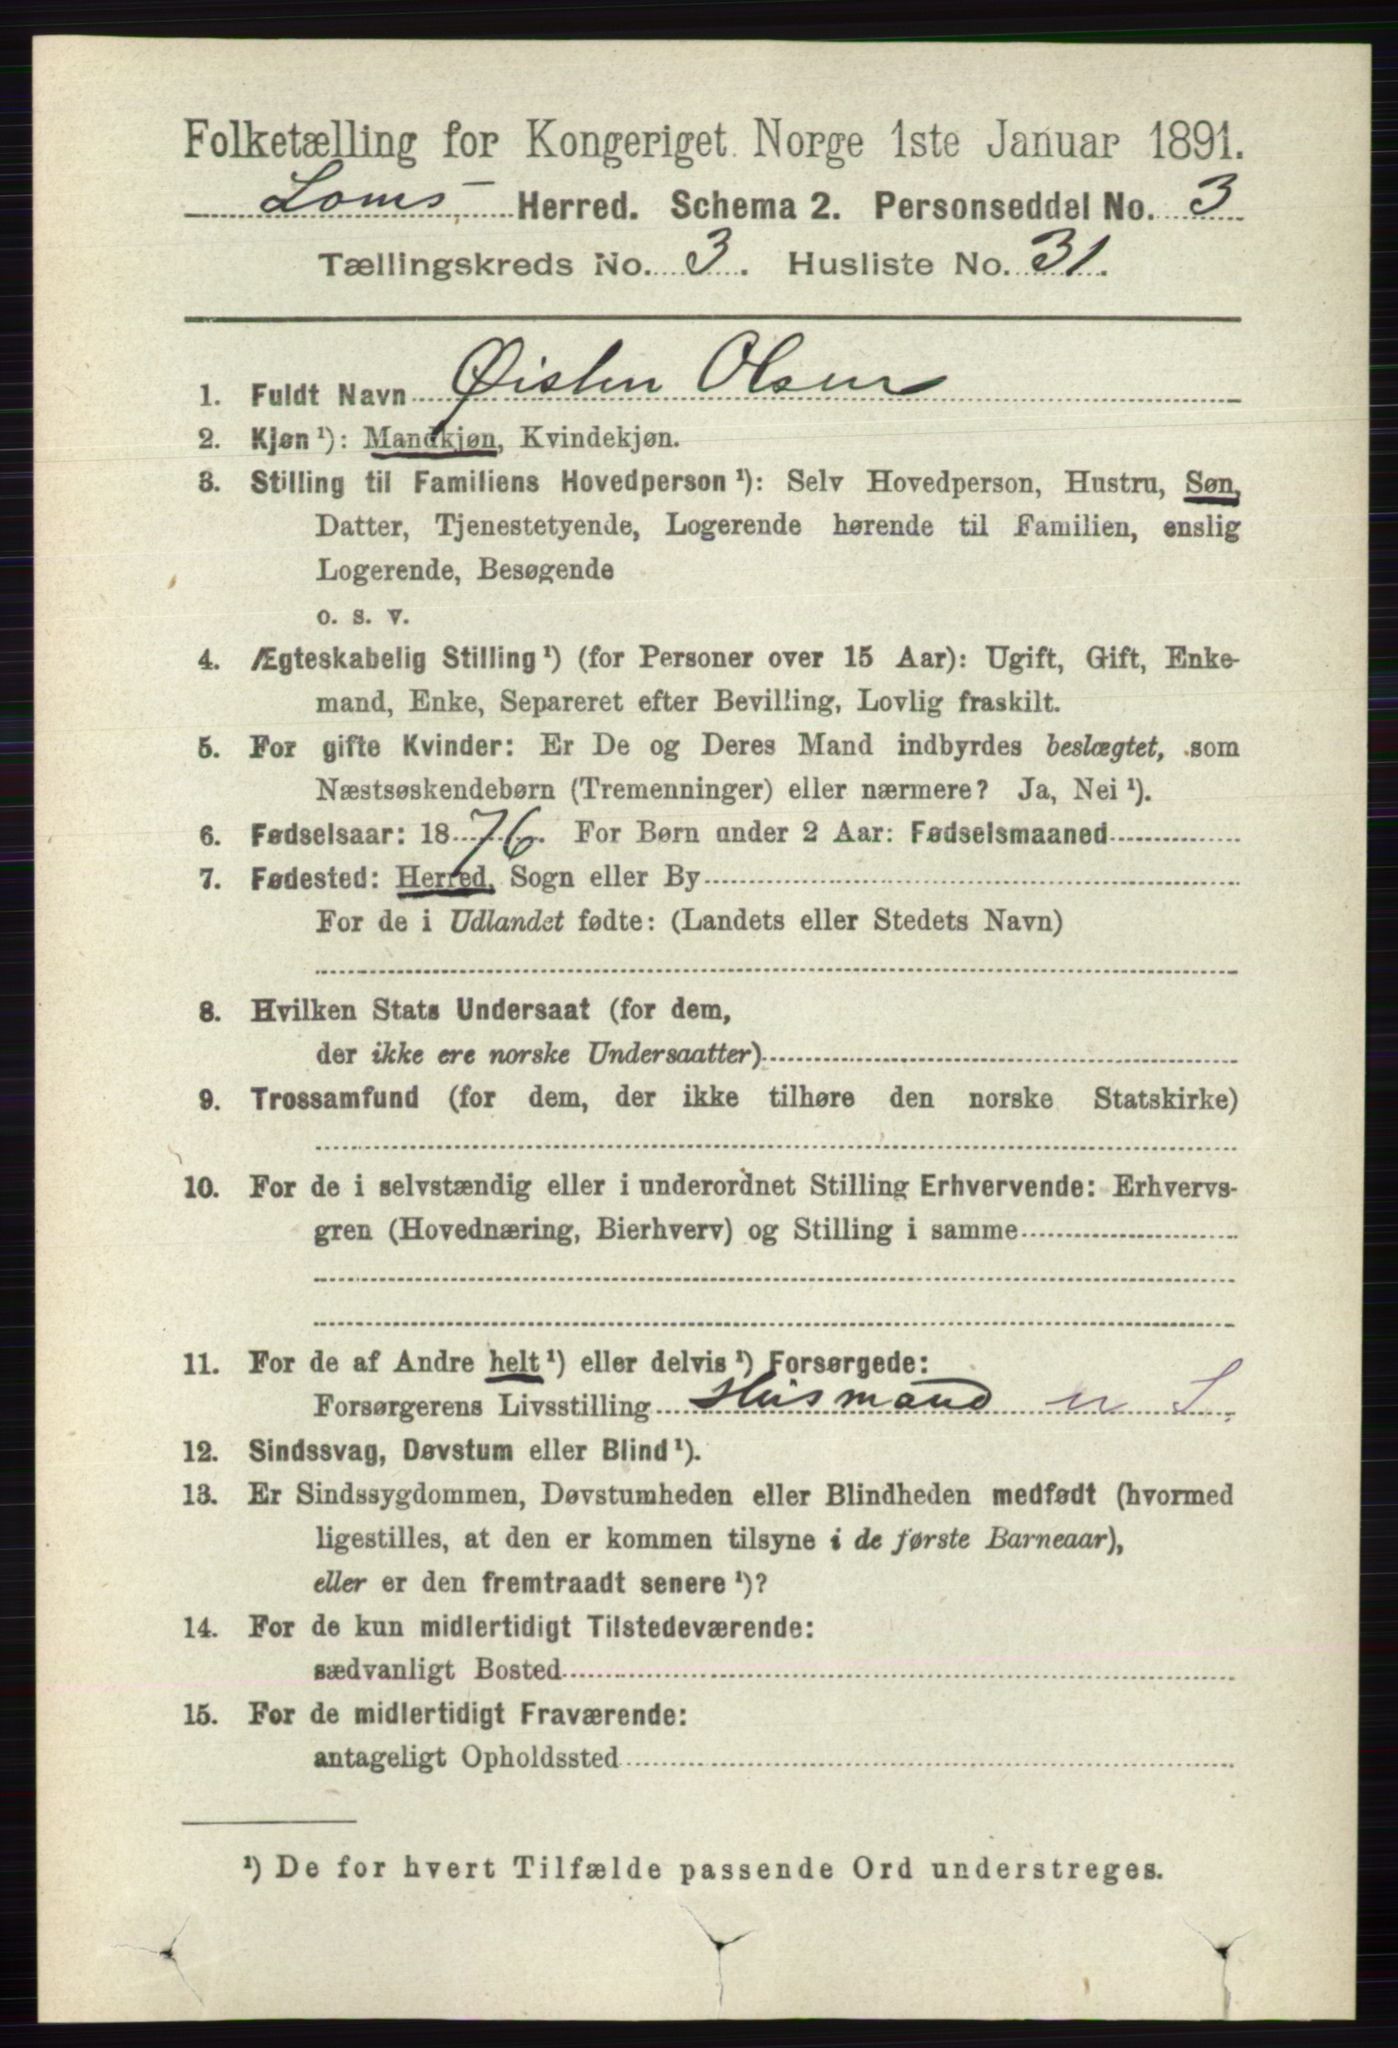 Folketælling for Kongeriget Norge 1ste Januar 1891.
Loms Herred. Schema 2. Personseddel No. 3
Tællingskreds No. 3. Husliste No. 31.
1. Fuldt Navn Øisten Olsen
2. Kjøn¹): Mandkjøn, Kvindekjøn.
3. Stilling til Familiens Hovedperson¹): Selv Hovedperson, Hustru, Søn,
Datter, Tjenestetyende, Logerende hørende til Familien, enslig
Logerende, Besøgende
o. s. v.
4. Ægteskabelig Stilling¹) (for Personer over 15 Aar): Ugift, Gift, Enke-
mand, Enke, Separeret efter Bevilling, Lovlig fraskilt.
5. For gifte Kvinder: Er De og Deres Mand indbyrdes beslægtet, som
Næstsøskendebørn (Tremenninger) eller nærmere? Ja, Nei¹).
6. Fødselsaar: 1876. For Børn under 2 Aar: Fødselsmaaned
7. Fødested: Herred, Sogn eller By
For de i Udlandet fødte: (Landets eller Stedets Navn)
8. Hvilken Stats Undersaat (for dem,
der ikke ere norske Undersaatter)
9. Trossamfund (for dem, der ikke tilhøre den norske Statskirke)
10. For de i selvstændig eller i underordnet Stilling Erhvervende: Erhvervs-
gren (Hovednæring, Bierhverv) og Stilling i samme
11. For de af Andre helt¹) eller delvis¹) Forsørgede:
Forsørgerens Livsstilling Husmand
12. Sindssvag, Døvstum eller Blind¹).
13. Er Sindssygdommen, Døvstumheden eller Blindheden medfødt (hvormed
ligestilles, at den er kommen tilsyne i de første Barneaar),
eller er den fremtraadt senere¹)?
14. For de kun midlertidigt Tilstedeværende:
sædvanligt Bosted
15. For de midlertidigt Fraværende:
antageligt Opholdssted
¹) De for hvert Tilfælde passende Ord understreges.